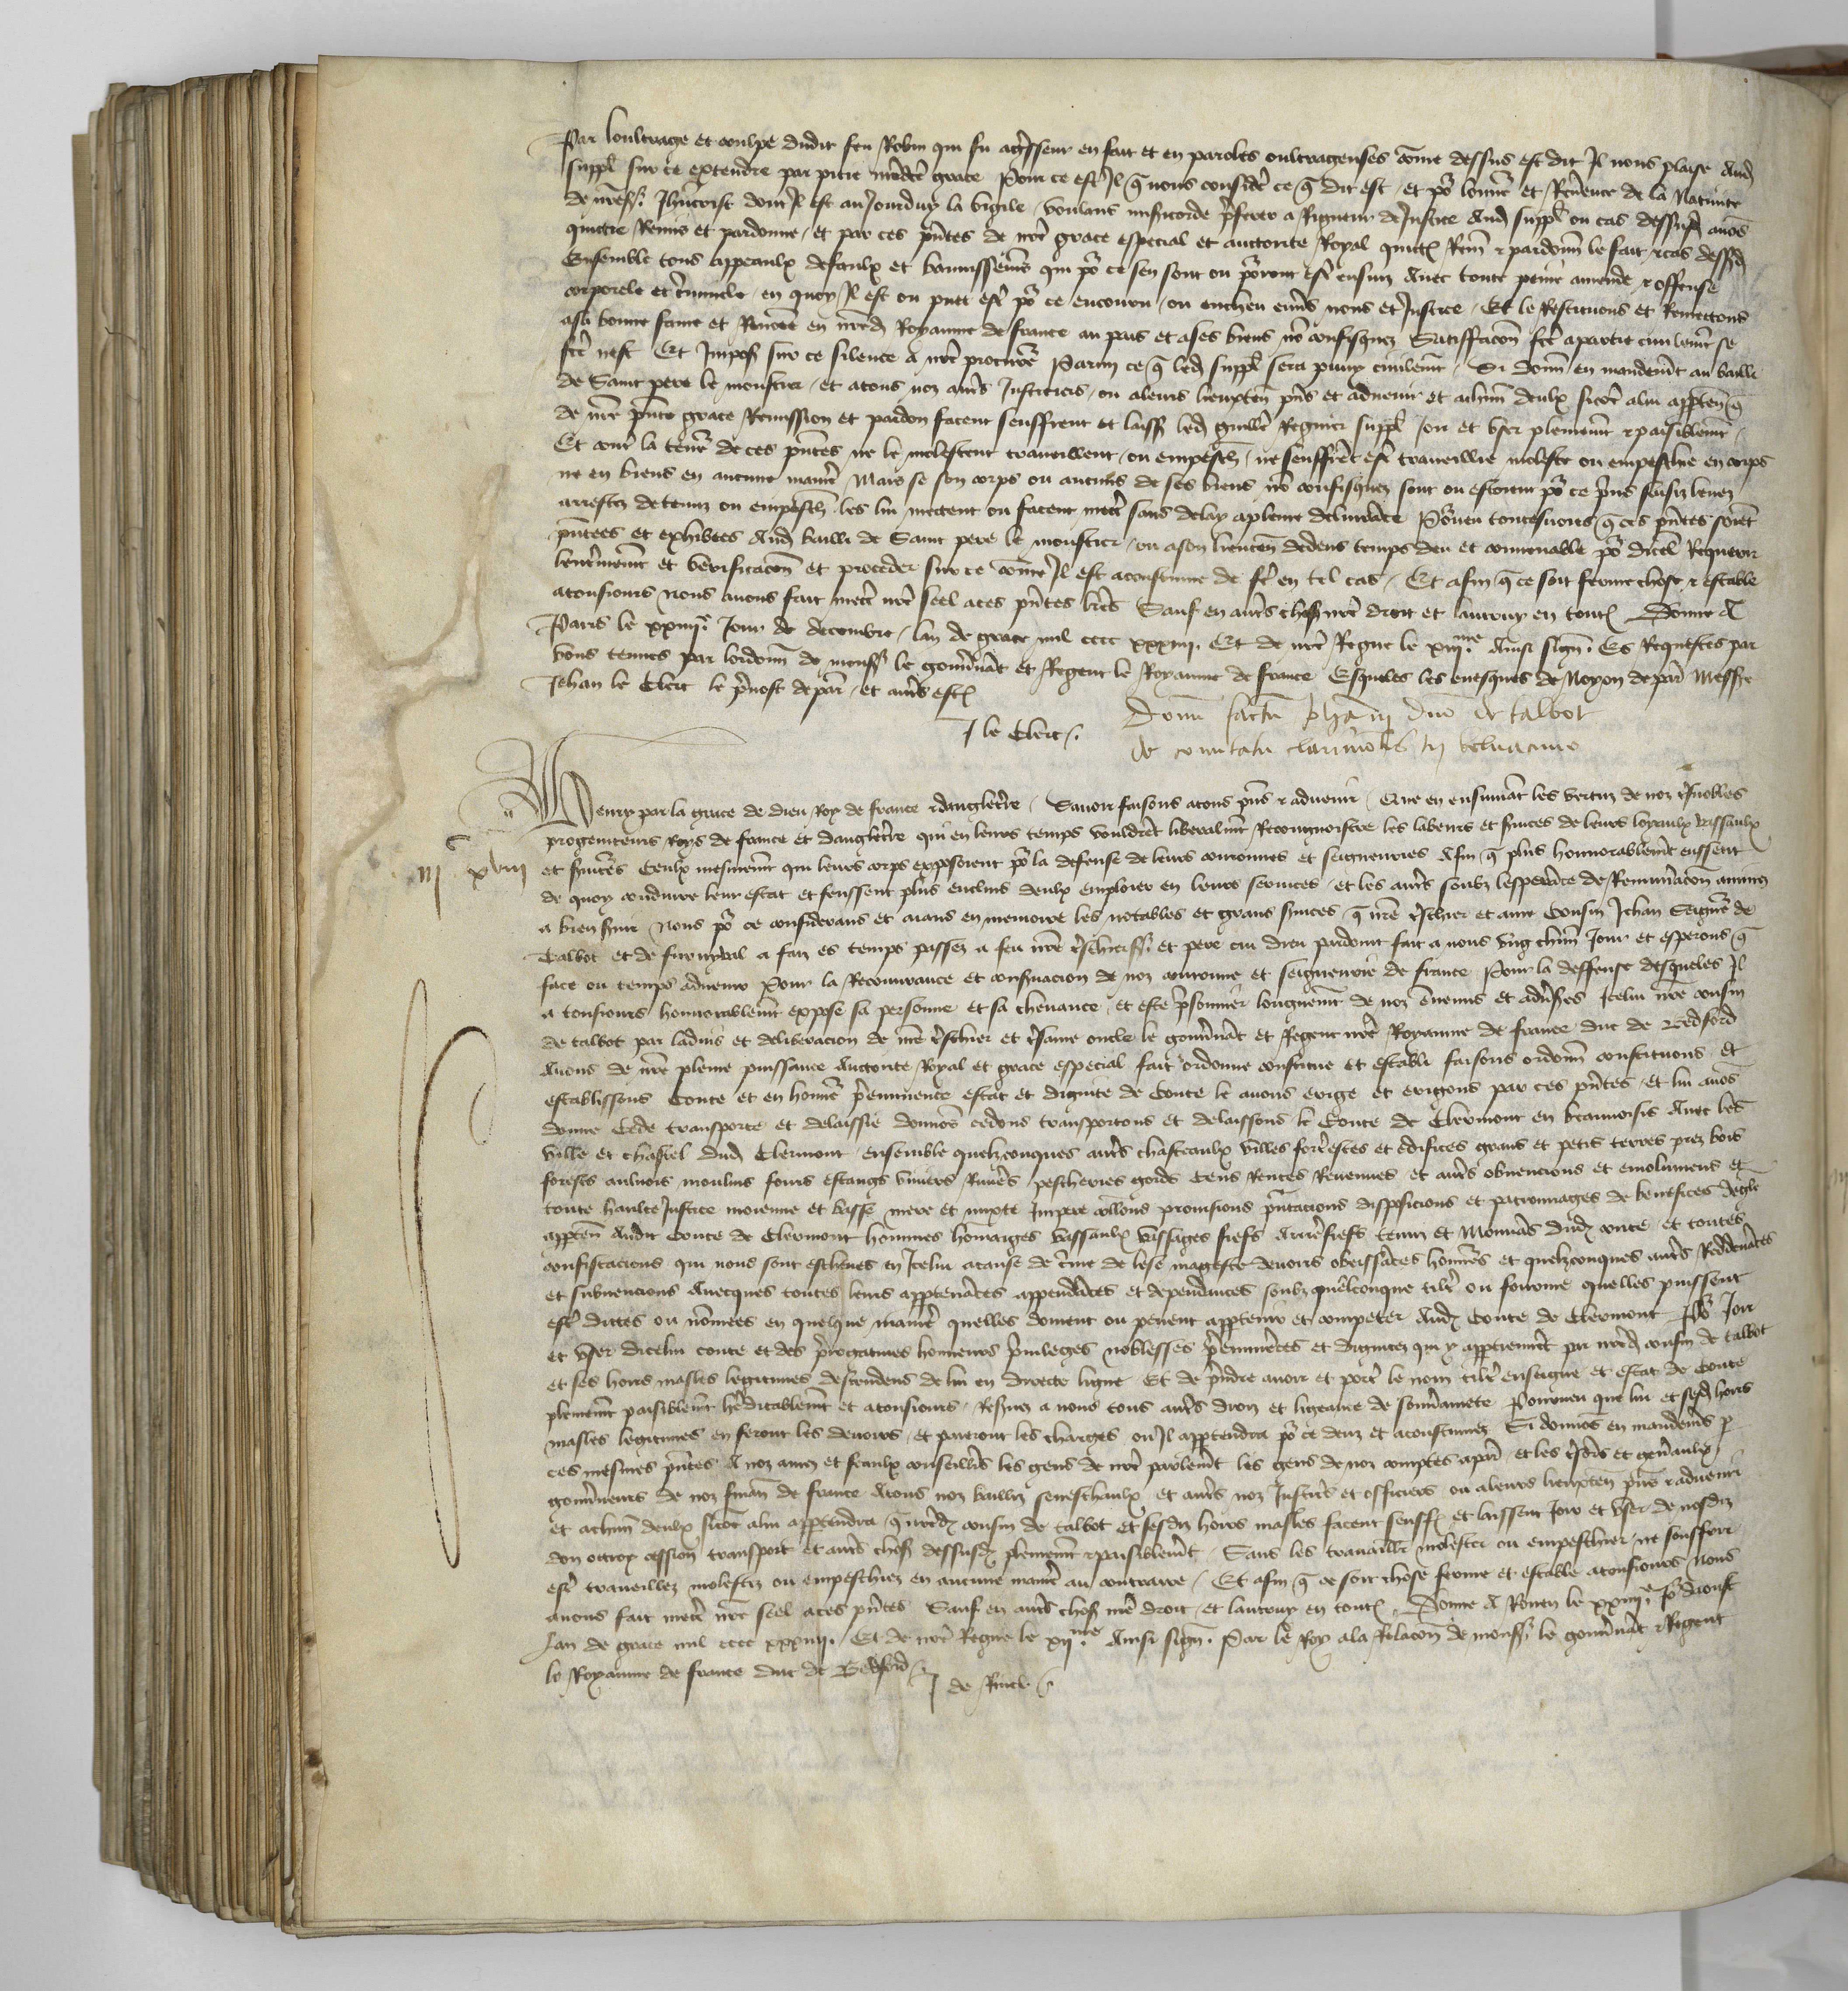 Par loultrage et coulpe dudit feu Robin qui fu agresseur en fait et en paroles oultrageuses cõme dessus est dit Il nous plaise Aud
suppl sur ce extendre par pitie nre grace Pour ce est Il q nous considere ce q dit est et po lonneur et Reverence de la Nativite
de nres Ihucrist dont Il est aujourduy la vigile voulans misericorde preferer a Rigueur de Justice Aud suppl ou cas dessusd avons
quicte Remis et pardonne et par ces pntes de nre grace especial et auctorite Royal quictons Remt et pardonn le fait et cas dessusd
Ensemble tous appeaulx defaulx et bannissemens qui po ce sen sont ou porront estre ensuiz Avec toute peine amende et offense
corporele et criminele en quoy Il est ou puet estre po ce encouru ou encheu envers nous et Justice Et le Restituons et Remettons
a sa bonne fame et Renomee en nred Royaume de france au pais et a ses biens no confisquez Satisfacion fce a partie civilemt se
fce nest Et Impos sur ce silence a nre procureur Parmi ce q led suppl sera puny civilemt Si donn en mandemt au bailli
de Saint pere le moustier et a tous noz autres Justiciers ou a leurs lieuxten pns et advenir et a chun deulx sicome a lui apptend q
de nre pnte grace Remission et pardon facent seuffrent et laiss led guille Regnier suppl joir et user plainemt et paisiblement
Et contre la teneur de ces pntes ne le molestent traveillent ou empesch ne seuffrent estre traveillie moleste ou empeschie en corps
ne en biens en aucune maniere Mais se son corps ou aucuns de ses biens no confisquez sont ou estoient po ce prins saisiz levez
arrestez detenuz ou empesch les lui mettent ou facent mettre sans delay a pleine delivrance Pourveu toutesvoies q ces pntes soient
pntees et exhibees Aud bailli de Saint pere le moustier ou a son lieuten dedens temps deu et convenable po dicel Requerir
lenterinemt et verificacion et proceder sur ce cõme Il est acoustume de fe en tel cas Et afin q ce soit ferme chose et estable
a tousiours nous avons fait mettre nre seel a ces pntes lres Sauf en autres choses nre droit et lautruy en toutes Donne A
Paris le xxiiii Jour de decembre lan de grace mil cccc xxxiiii Et de nre Regne le xiiime Ainsi sign Es Requestes par
vous tenues par lordonn de monss le gouvernant et Regent le Royaume de france Esqueles les evesques de Noyon de par Messre
Jehan le Clerc le prevost de par et autres estoient
J le Clerc
Donum factum Johanni dno de talbot
de comitatu clarimontis in belvacinio
Henry par la grace de dieu Roy de france et dangleterre Savoir faisons a tous pns et advenir Que en ensuivant les vertuz de noz tresnobles
progeniteurs Roys de france et dangleterre qui en leurs temps vouldrent liberalment Recongnoistre les labeurs et services de leurs loyaulx vassaulx
iiic xviii
et serviteurs Ceulx mesmement qui leurs corps exposoient po la defense de leurs couronnes et seigneuries Afin q plus honnorablement eussent
de quoy conduire leur estat et feussent plus enclins deulx emploier en leurs services et les autres soubz lesperance de Remuneracion animez
a bien servir Nous po ce considerans et aians en memoire les notables et grans services q nre treschier et ame Cousin Jehan Seigneur de
Talbot et de furnyval a faiz es temps passez a feu nre treschierss et pere cui dieu pardoint fait a nous ung chun Jour et esperons q
face ou temps advenir Pour la Recouvrance et conservacion de noz couronne et seigneurie de france Pour la deffense desqueles Il
a tousiours honnorablement expose sa personne et sa chevance et este prisonnier longuement de noz ennemis et adversaires Icelui nre cousin
de talbot par ladvis et deliberacion de nre treschier et tresame oncle le gouvernant et Regent nre Royaume de france duc de Bedford
Avons de nre pleine puissance Auctorite Royal et grace especial fait ordonne constitue et establi faisons ordonn constituons et
establissons Conte et en honneur preeminence estat et dignite de Conte le avons erige et erigons par ces pntes et lui avons
donne Cede transporte et delaissie donnons cedons transportons et delaissons le Conte de Clermont en beauvoisis Avec les
ville et chastel dud Clermont ensemble quelzconques autres chasteaulx villes forteresces et edifices grans et petis terres prez bois
forestz aulnois moulins fours estangs viviers Rivieres pescheries gords Cens Rentes Revenues et autres obvencions et emolumens et
toute haulte Justice moienne et basse mere et mixte Impere collacions provisions presentacions disposicions et patronnages de benefices degle
appten Audit Conte de Clermont hommes hommages vassaulx vassages fiefs Arrerefiefs tenuz et Mouvans dud conte et toutes
confiscacions qui nous sont escheues en Icelui a cause de crime de lese mageste devoirs obeissances honneurs et quelzconques autres Reddevances
et subvencions Avecques toutes leurs apptenances appendances et dependances soubz quelconque tiltre ou fourme quelles puissent
estre dictes ou nommees en quelque maniere quelles doivent ou peuent apptenir et competer Aud Conte de Clermont Po Joir
et User dicelui conte et des prerogatives honneurs privileges noblesses preeminences et dignitez qui y apptiennent par nred cousin de talbot
et ses hoirs masles legitimes descendens de lui en directe ligne Et de prendre avoir et porter le nom tiltre enseigne et estat de Conte
plainemt paisiblemt hereditablemt et a tousiours Reservez a nous tous autres droiz et ligeance de souverainete Pourveu que lui et sesd hoirs
masles legitimes en feront les devoirs et paieront les charges ou Il apptendra po ce deuz et acoustumez Si donnons en mandemt p
ces mesmes pntes A noz amez et feaulx conseilliers les gens de nre parlement les gens de noz comptes a paris et les tresoriers et generaulx
gouverneurs de noz finan de france A tous noz bailliz seneschaulx et autres noz Justiciers et officiers ou a leurs lieuxten pns et advenir
et a chun deulx sicome a lui apptendra q nred cousin de talbot et sesdiz hoirs masles facent seuffr et laissent Joir et User de nosdiz
don ottroy cession transport et autres choses dessusd plainement et paisiblement Sans les travaillier molester ou empeschier ne souffrir
estre traveillez molestez ou empeschiez en aucune maniere au contraire Et afin q ce soit chose ferme et estable a tousiours Nous
avons fait mettre nre seel a ces pntes Sauf en autres choses nre droit et lautruy en toutes Donne A Rouen le xxiiii Jo daoust
Lan de grace mil cccc xxxiiii Et de nre Regne le xiime Ainsi sign Par le Roy a la Relacion de monss le gouvernant et Regent
le Royaume de france duc de Bedford
J de Rinel